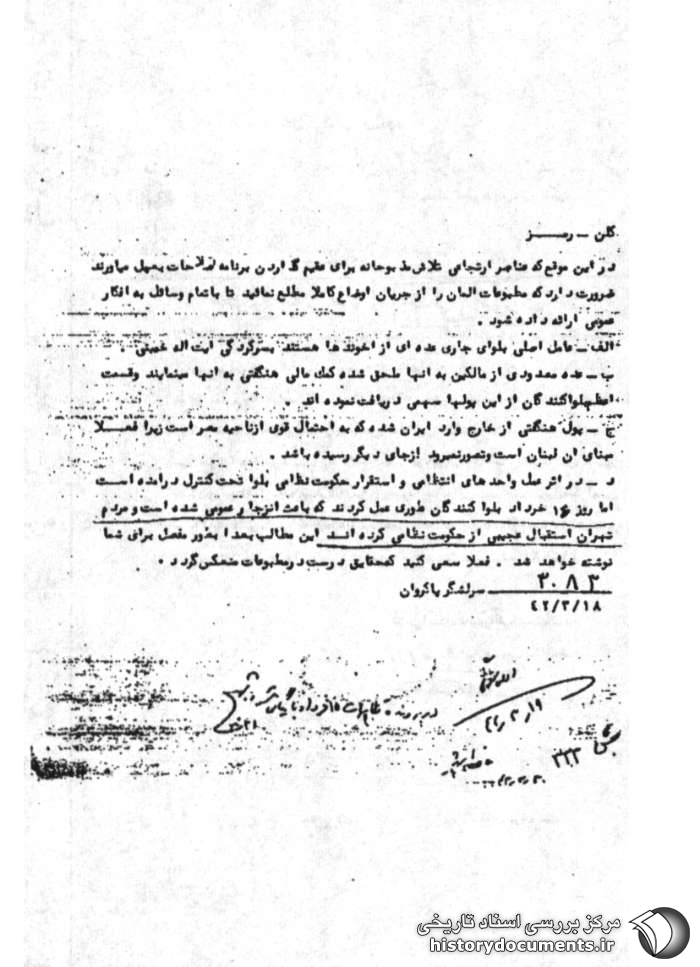 کلن - رمـــــز
در این موقع که عناصر ارتجاعی تلاش مذبوحانه برای عقیم گذاردن برنامه اصلاحات بعمل میآورند
ضرورت دارد که مطبوعات آلمان را از جریان اوضاع کاملا مطلع نمائید تا با تمام وسائل به افکار
عمومی ارائه داده شود .
الف - عامل اصلی بلوای جاری عده ای از آخوندها هستند بسرکردگی آیت اله خمینی .
ب - عده معدودی از مالکین به آنها ملحق شده کمک مالی هنگفتی به آنها مینمایند وقسمت
اعظم بلواکنندگان از این پولها سهمی دریافت نموده اند .
ج - پول هنگفتی از خارج وارد ایران شده که به احتمال قوی از ناحیه مصر است زیرا فعـــلا
مبنای آن لبنان است وتصورنمیرود ازجای دیگر رسیده باشد .
د - در اثر عمل واحدهای انتظامی و استقرار حکومت نظامی بلوا تحت کنترل درآمده اســت
اما روز ۱۶ خرداد بلواکنندگان طوری عمل کردند که باعث انزجار عمومی شده است و مردم
تهران استقبال عجیبی از حکومت نظامی کرده انــد این مطالب بعدا بطور مفصل برای شما
نوشته خواهد شد . فعلا سعی کنید که حقایق درست در مطبوعات منعکس گردد .
سرلشگر پاکروان ۳۰۸۳
۴۲/۳/۱۸
در پرونده تظاهرات ۱۵ خرداد
۴۲٫۳٫۱۹
۳۳۳
مرکز بررسی اسناد تاریخی
historydocuments.ir